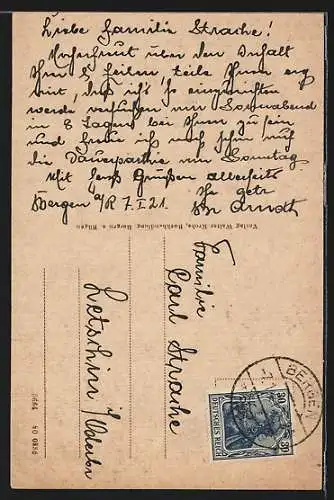 Liebe Familie Strache!
Hocherfreut über den Inhalt
Ihrer 8 Zeilen, teile Ihnen erg.
mit, daß ich's so einzurichten
werde versuchen um Sonnabend
in 8 Tagen bei Ihnen zu sein
und freue ich mich schon auf
die Dauerpartie am Sonntag
Mit herzl. Grüßen allerseits
Ihr getr.
Bergen a/R 7.I.21. Arndt
Verlag Walter Krohs, Buchhandlung, Bergen a. Rügen
Familie
Carl Strache
Letschin i/
Oderbr.
BERGEN
30 30
DEUTSCHES REICH